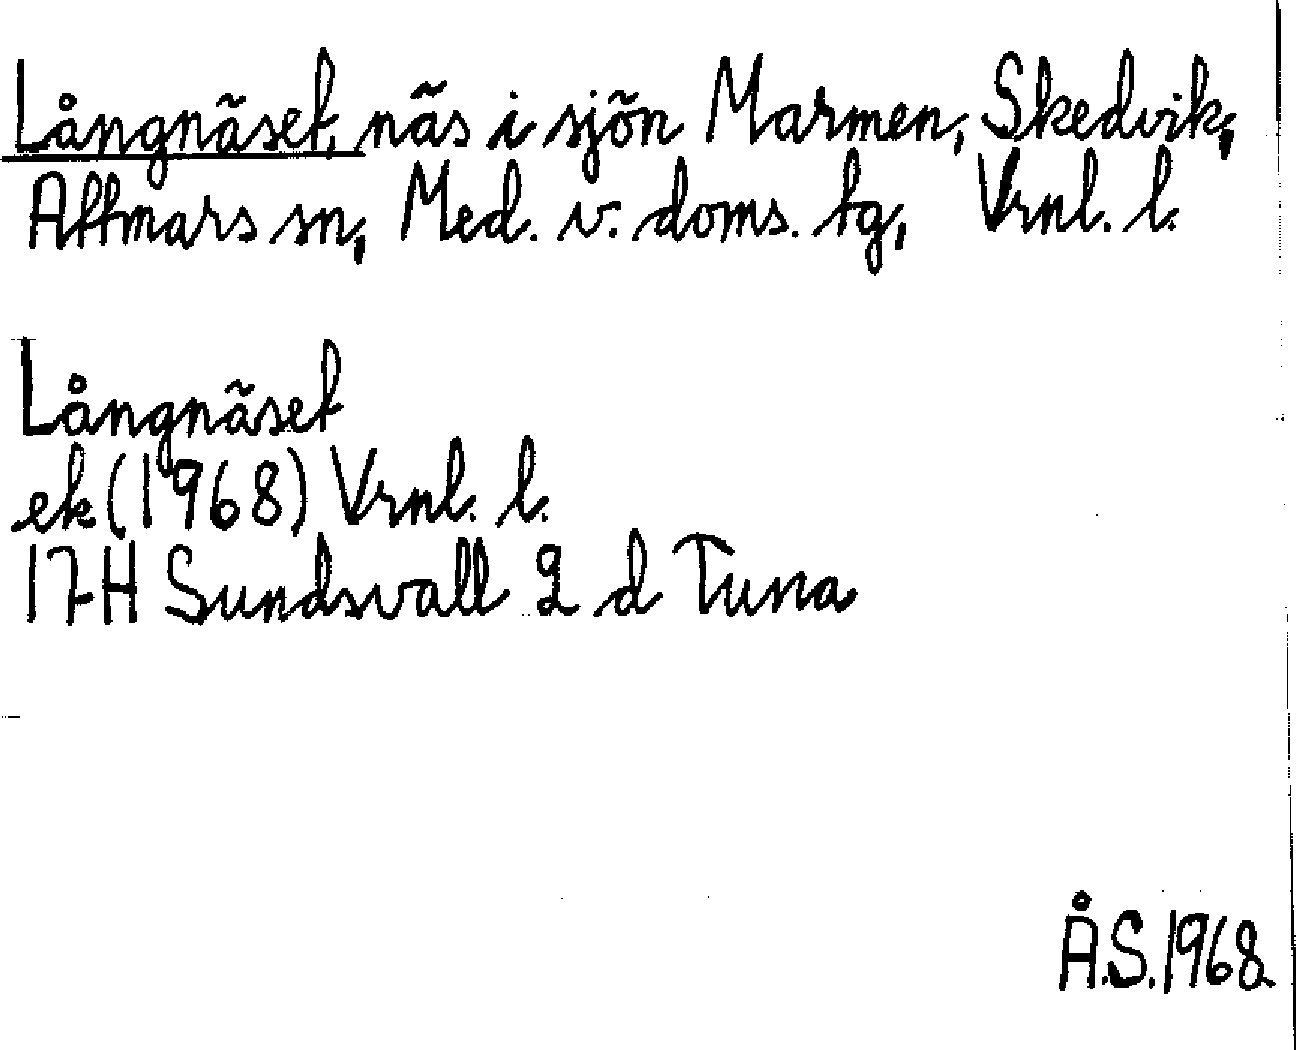 Långnäset, näs i sjön Marmen, Skedvik,
Attmars sn, Med. v. doms. tg, Vrnl. l.
Långnäset
ek (1968) Vrnl. l.
17H Sundsvall 2 d Tuna
Å.S. 1968